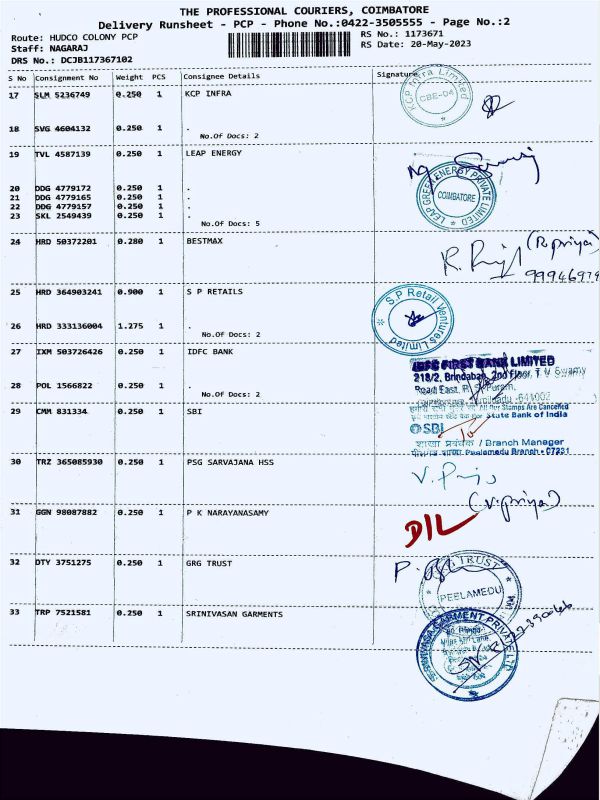 THE PROFESSIONAL COURIERS, COIMBATORE
Delivery Runsheet - PCP - Phone No.:0422-3505555 - Page No.:2
Route: HUDCO COLONY PCP
RS No.: 1173671
Staff: NAGARAJ
RS Date: 20-May-2023
DRS No.: DCJB117367102
S No Consignment No Weight PCS Consignee Details Signature
17 SLM 5236749 0.250 1 KCP INFRA
KCP Infra Limited
CBE-04
18 SVG 4604132 0.250 1 .
No.Of Docs: 2
19 TVL 4587139 0.250 1 LEAP ENERGY
LEAP GREEN ENERGY PRIVATE LIMITED
COIMBATORE
20 DDG 4779172 0.250 1 .
21 DDG 4779165 0.250 1 .
22 DDG 4779157 0.250 1 .
23 SKL 2549439 0.250 1 .
No.Of Docs: 5
24 HRD 50372201 0.280 1 BESTMAX
25 HRD 364903241 0.900 1 S P RETAILS
S.P Retail Ventures Limited
26 HRD 333136004 1.275 1 .
No.Of Docs: 2
27 IXM 503726426 0.250 1 IDFC BANK
IDFC FIRST BANK LIMITED
218/2, Brindaban, 2nd Floor, T V Swamy
Road East, R. S. Puram,
28 POL 1566822 0.250 1 .
No.Of Docs: 2
29 CMM 831334 0.250 1 SBI
All Our Stamps Are Cancelled
State Bank of India
SBI
शाखा प्रबंधक / Branch Manager
Peelamedu Branch - 07231
30 TRZ 365085930 0.250 1 PSG SARVAJANA HSS
(V.priya)
31 GGN 98087882 0.250 1 P K NARAYANASAMY
D/L
32 DTY 3751275 0.250 1 GRG TRUST
TRUST
PEELAMEDU
33 TRP 7521581 0.250 1 SRINIVASAN GARMENTS
GARMENT PRIVATE LTD